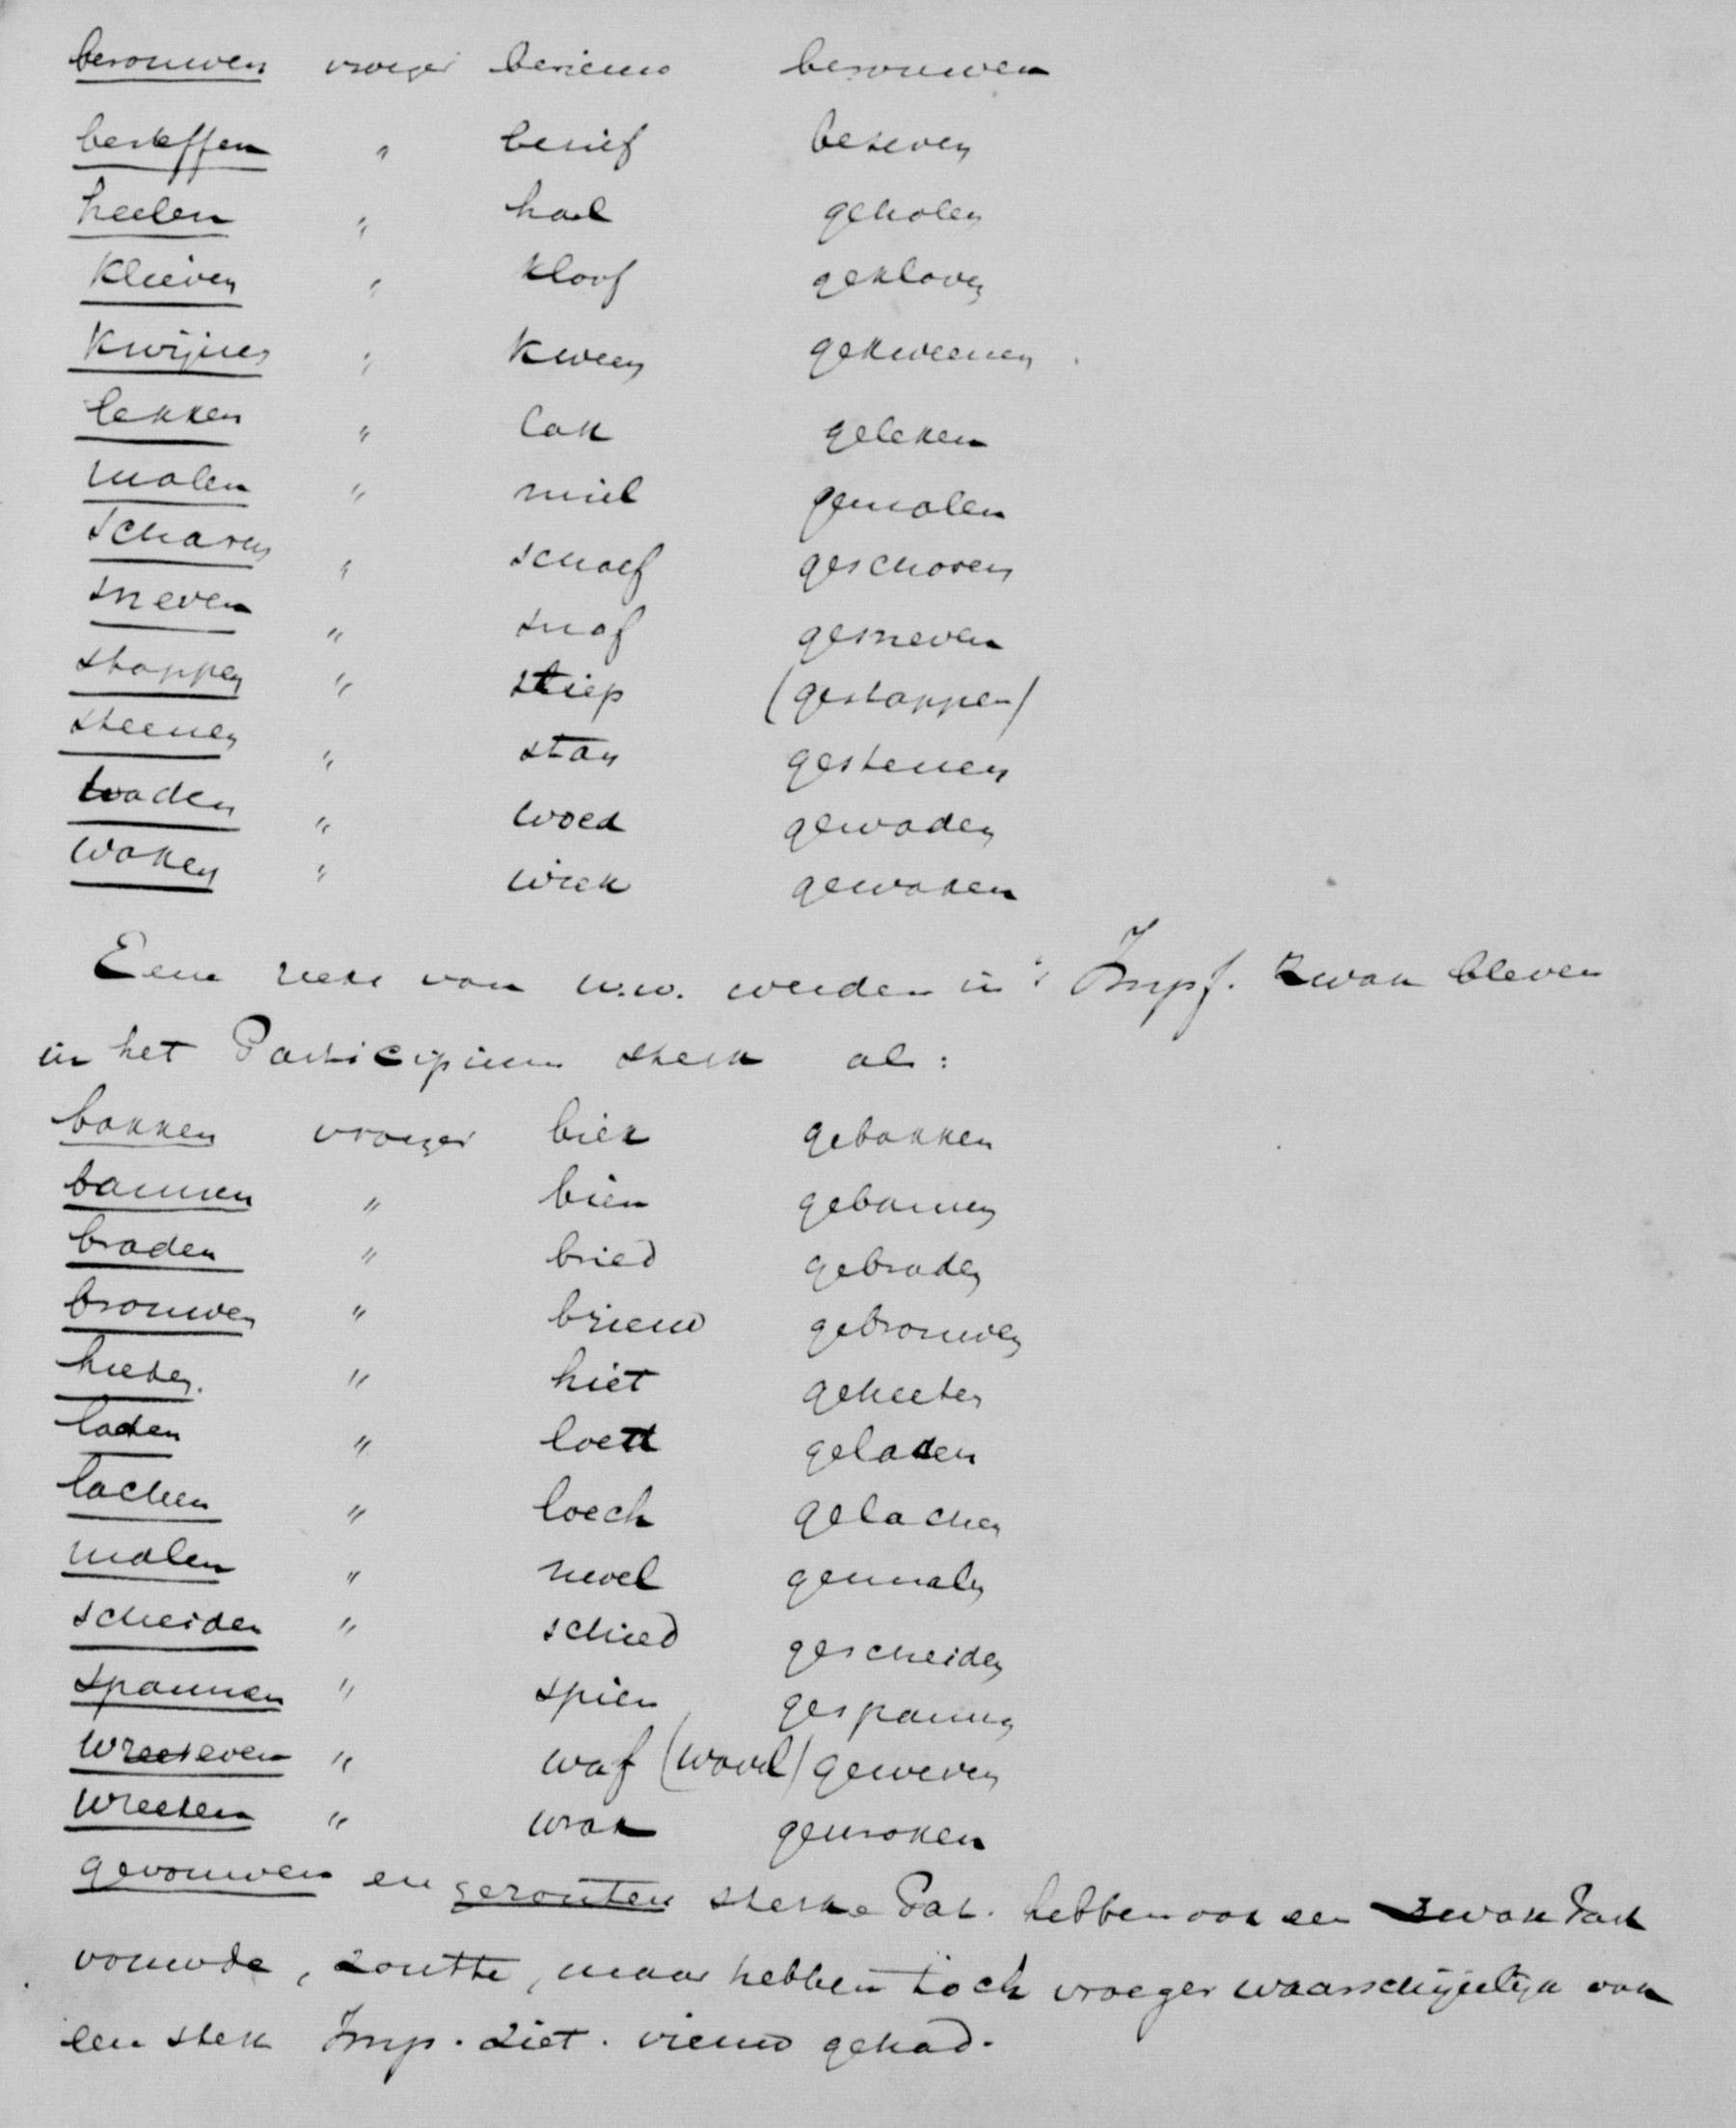 berouwen vroeger berieuw berouwen
beseffen " besief beseven
heelen " hal geholen
klieven " kloof gekloven
kwijnen " kween gekweenen
lekken " lak geleken
malen " miel gemalen
schaven " schoef geschaven
sneven " snaf gesneven
stappen " stiep (gestappen)
steenen " stan gestenen
waden " woed gewaden
waken " wiek gewaken
Eene reeks van w.w. werden in 't Impf. zwak bleven
in het Participium sterk als:
bakken vroeger biek gebakken
bannen " bien gebannen
braden " bried gebraden
brouwen " brieuw gebrouwen
heeten " hiet geheeten
laden " loed geladen
lachen " loech gelachen
malen " moel gemalen
scheiden " schied gescheiden
spannen " spien gespannen
weven " waf (woof) geweven
wreken " wrak gewroken
gevouwen en gezouten sterke Part. hebben ook een zwak Part
vouwde, zoutte, maar hebben toch vroeger waarschijnlijk ook
een sterk Imp. ziet. vieuw gehad.